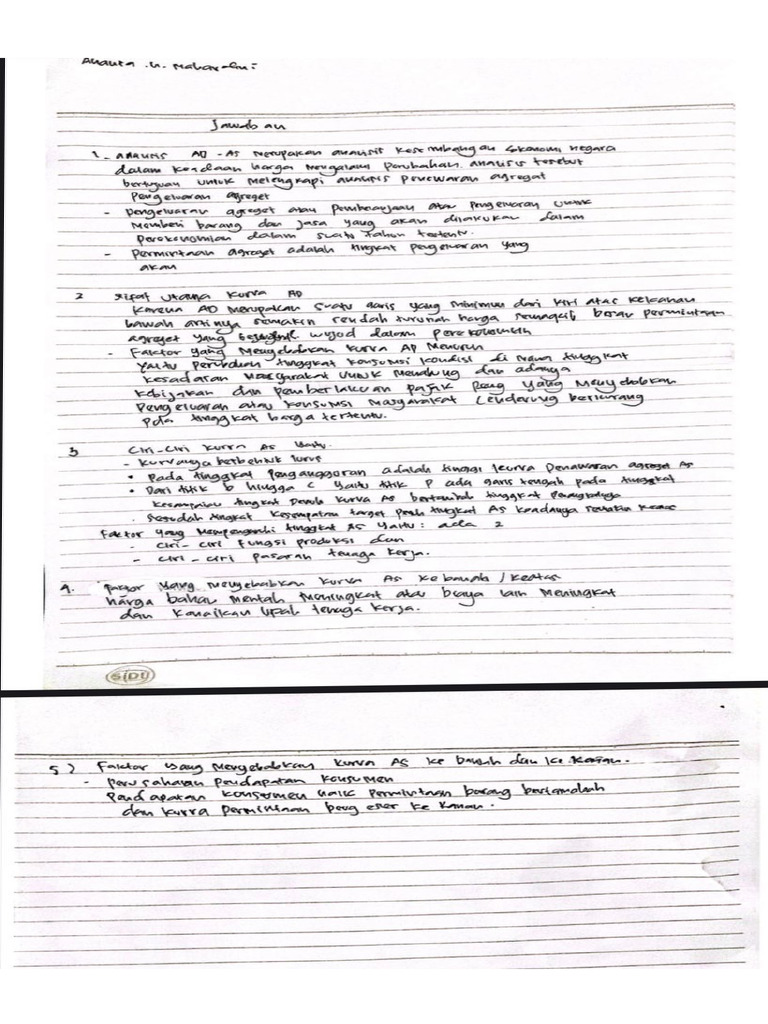 Jawaban
1. Analisis AD-AS merupakan analisis keseimbangan ekonomi negara
dalam keadaan harga mengalami perubahan. analisis tersebut
bertujuan untuk melengkapi analisis penawaran agregat
Pengeluaran agreget
- Pengeluaran agreget atau pembelanjaan atau pengeluaran untuk
memberi barang dan jasa yang akan dilakukan dalam
perekonomian dalam suatu tahun tertentu.
- Permintaan agreget adalah tingkat pengeluaran yang
akan
2 sifat utama kurva AD
karena AD merupakan suatu garis yang dari kiri atas kekanan
bawah artinya semakin rendah turunah harga besar permintaan
agreget yang wujod dalam perekonomian
- Faktor yang menyebabkan kurva AD menurun
yaitu perubahan tinggkat konsumsi kondisi di mana tinggkat
kesadaran masyarakat untuk menabung dan adanya
kebijakan dan pemberlakuan pajak yang menyebabkan
pengeluaran atau konsumsi masyarakat cenderung berkurang
pda tinggkat harga tertentu.
3 Ciri-Ciri kurva AS yaitu.
- kurvanya berbentuk lurus
• pada tinggkat pengangguran adalah tinggi kurva penawaran agreget AS
• Dari titik b hingga c yaitu titik P ada garis tengah pada tinggkat
tingkat penuh kurva AS bertambah tinggkat
. sesudah tingkat kesempatan target penuh tingkat AS keadanya semakin
Faktor yang mempengaruhi tinggkat AS yaitu: ada 2
- ciri-ciri fungsi produksi dan
- ciri-ciri pasaran tenaga kerja.
4. Faktor yang menyebabkan kurva AS kebawah/keatas
harga bahan mentah meningkat atau biaya lain meningkat
dan kenaikan upah tenaga kerja.
SiDU
5) Faktor yang menyebabkan kurva AS ke bawah dan ke kanan.
- perusaharan pendapatan konsumen
pendapatan konsumen naik permintaan barang bertambah
dan kurva permintaan beug eser ke kanan.